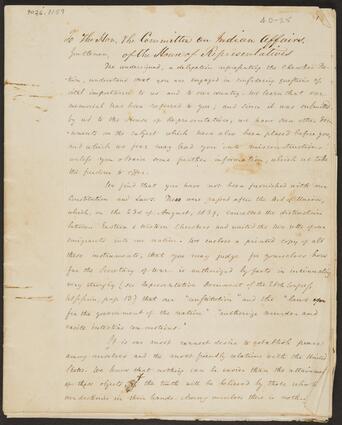 4026.1159
40-25
To The Hon. The Committee on Indian Affairs,
of the House of Representatives
Gentlemen,
The undersigned, a delegation representing the Cherokee Na-
tion, understand that you are engaged in considering questions of
vital importance to us and to our country. We learn that our
memorial has been referred to you; and since it was submitted
by us to the House of Representatives, we have seen other doc-
uments on the subject which have also been placed before you,
and which we fear may lead you into misconstruction,
unless you obtain some further information, which we take
the freedom to offer.
We find that you have not been furnished with our
Constitution and Laws. These was passed after the Act of Union,
which, on the 23d of August, 1839, cancelled the distinction
between Eastern & Western Cherokees and united the two
emigrants into one nation. We enclose a printed copy of all
these instruments, that you may judge for yourselves how
far the Secretary of War is authorized by facts in insinuating
very strongly (see Representative Document of the 26th Congress
1st session, page 15) that our "constitution" and the "laws
for the government of the nation" "authorize murder and
excite intestine commotions."
It is our most earnest desire to establish peace
among ourselves and the most friendly relations with the United
States. We know that nothing can be easier than the attainment
of these objects, if the truth will be believed by those who hold
our destinies in their hands. Among ourselves there is neither